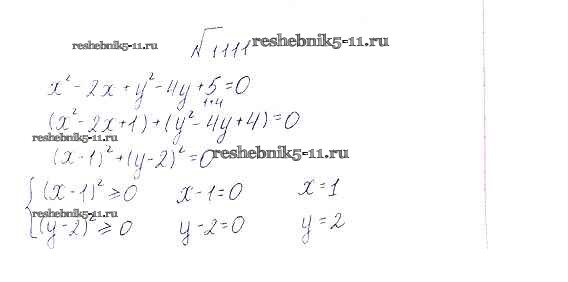 reshebnik5-11.ru
№1111 reshebnik5-11.ru
x² - 2x + y² - 4y + 5 = 0
1+4
(x² - 2x + 1) + (y² - 4y + 4) = 0
reshebnik5-11.ru
(x - 1)² + (y - 2)² = 0 reshebnik5-11.ru
{ (x - 1)² ≥ 0 x - 1 = 0 x = 1
reshebnik5-11.ru
(y - 2)² ≥ 0 y - 2 = 0 y = 2